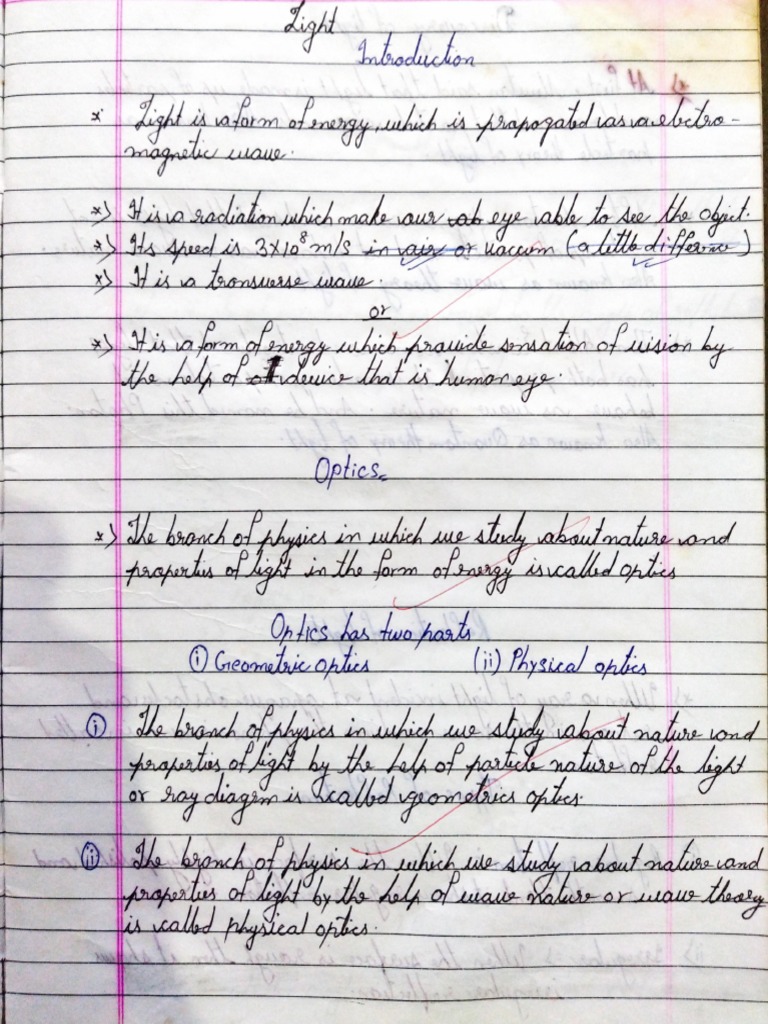 Light
Introduction
* Light is a form of energy, which is propogated as a electro-
magnetic wave.
*) It is a radiation which make our eye able to see the object.
*) Its speed is 3x10⁸ m/s in air or vaccum (a little difference)
*) It is a transverse wave.
or
*) It is a form of energy which provide sensation of vision by
the help of 1 device that is human eye.
Optics
*) The branch of physics in which we study about nature and
properties of light in the form of energy is called optics
Optics has two parts
(i) Geometric optics (ii) Physical optics
(i) The branch of physics in which we study about nature and
properties of light by the help of particle nature of the light
or ray diagrm is called geometrics optics.
(ii) The branch of physics in which we study about nature and
properties of light by the help of wave nature or wave theory
is called physical optics.